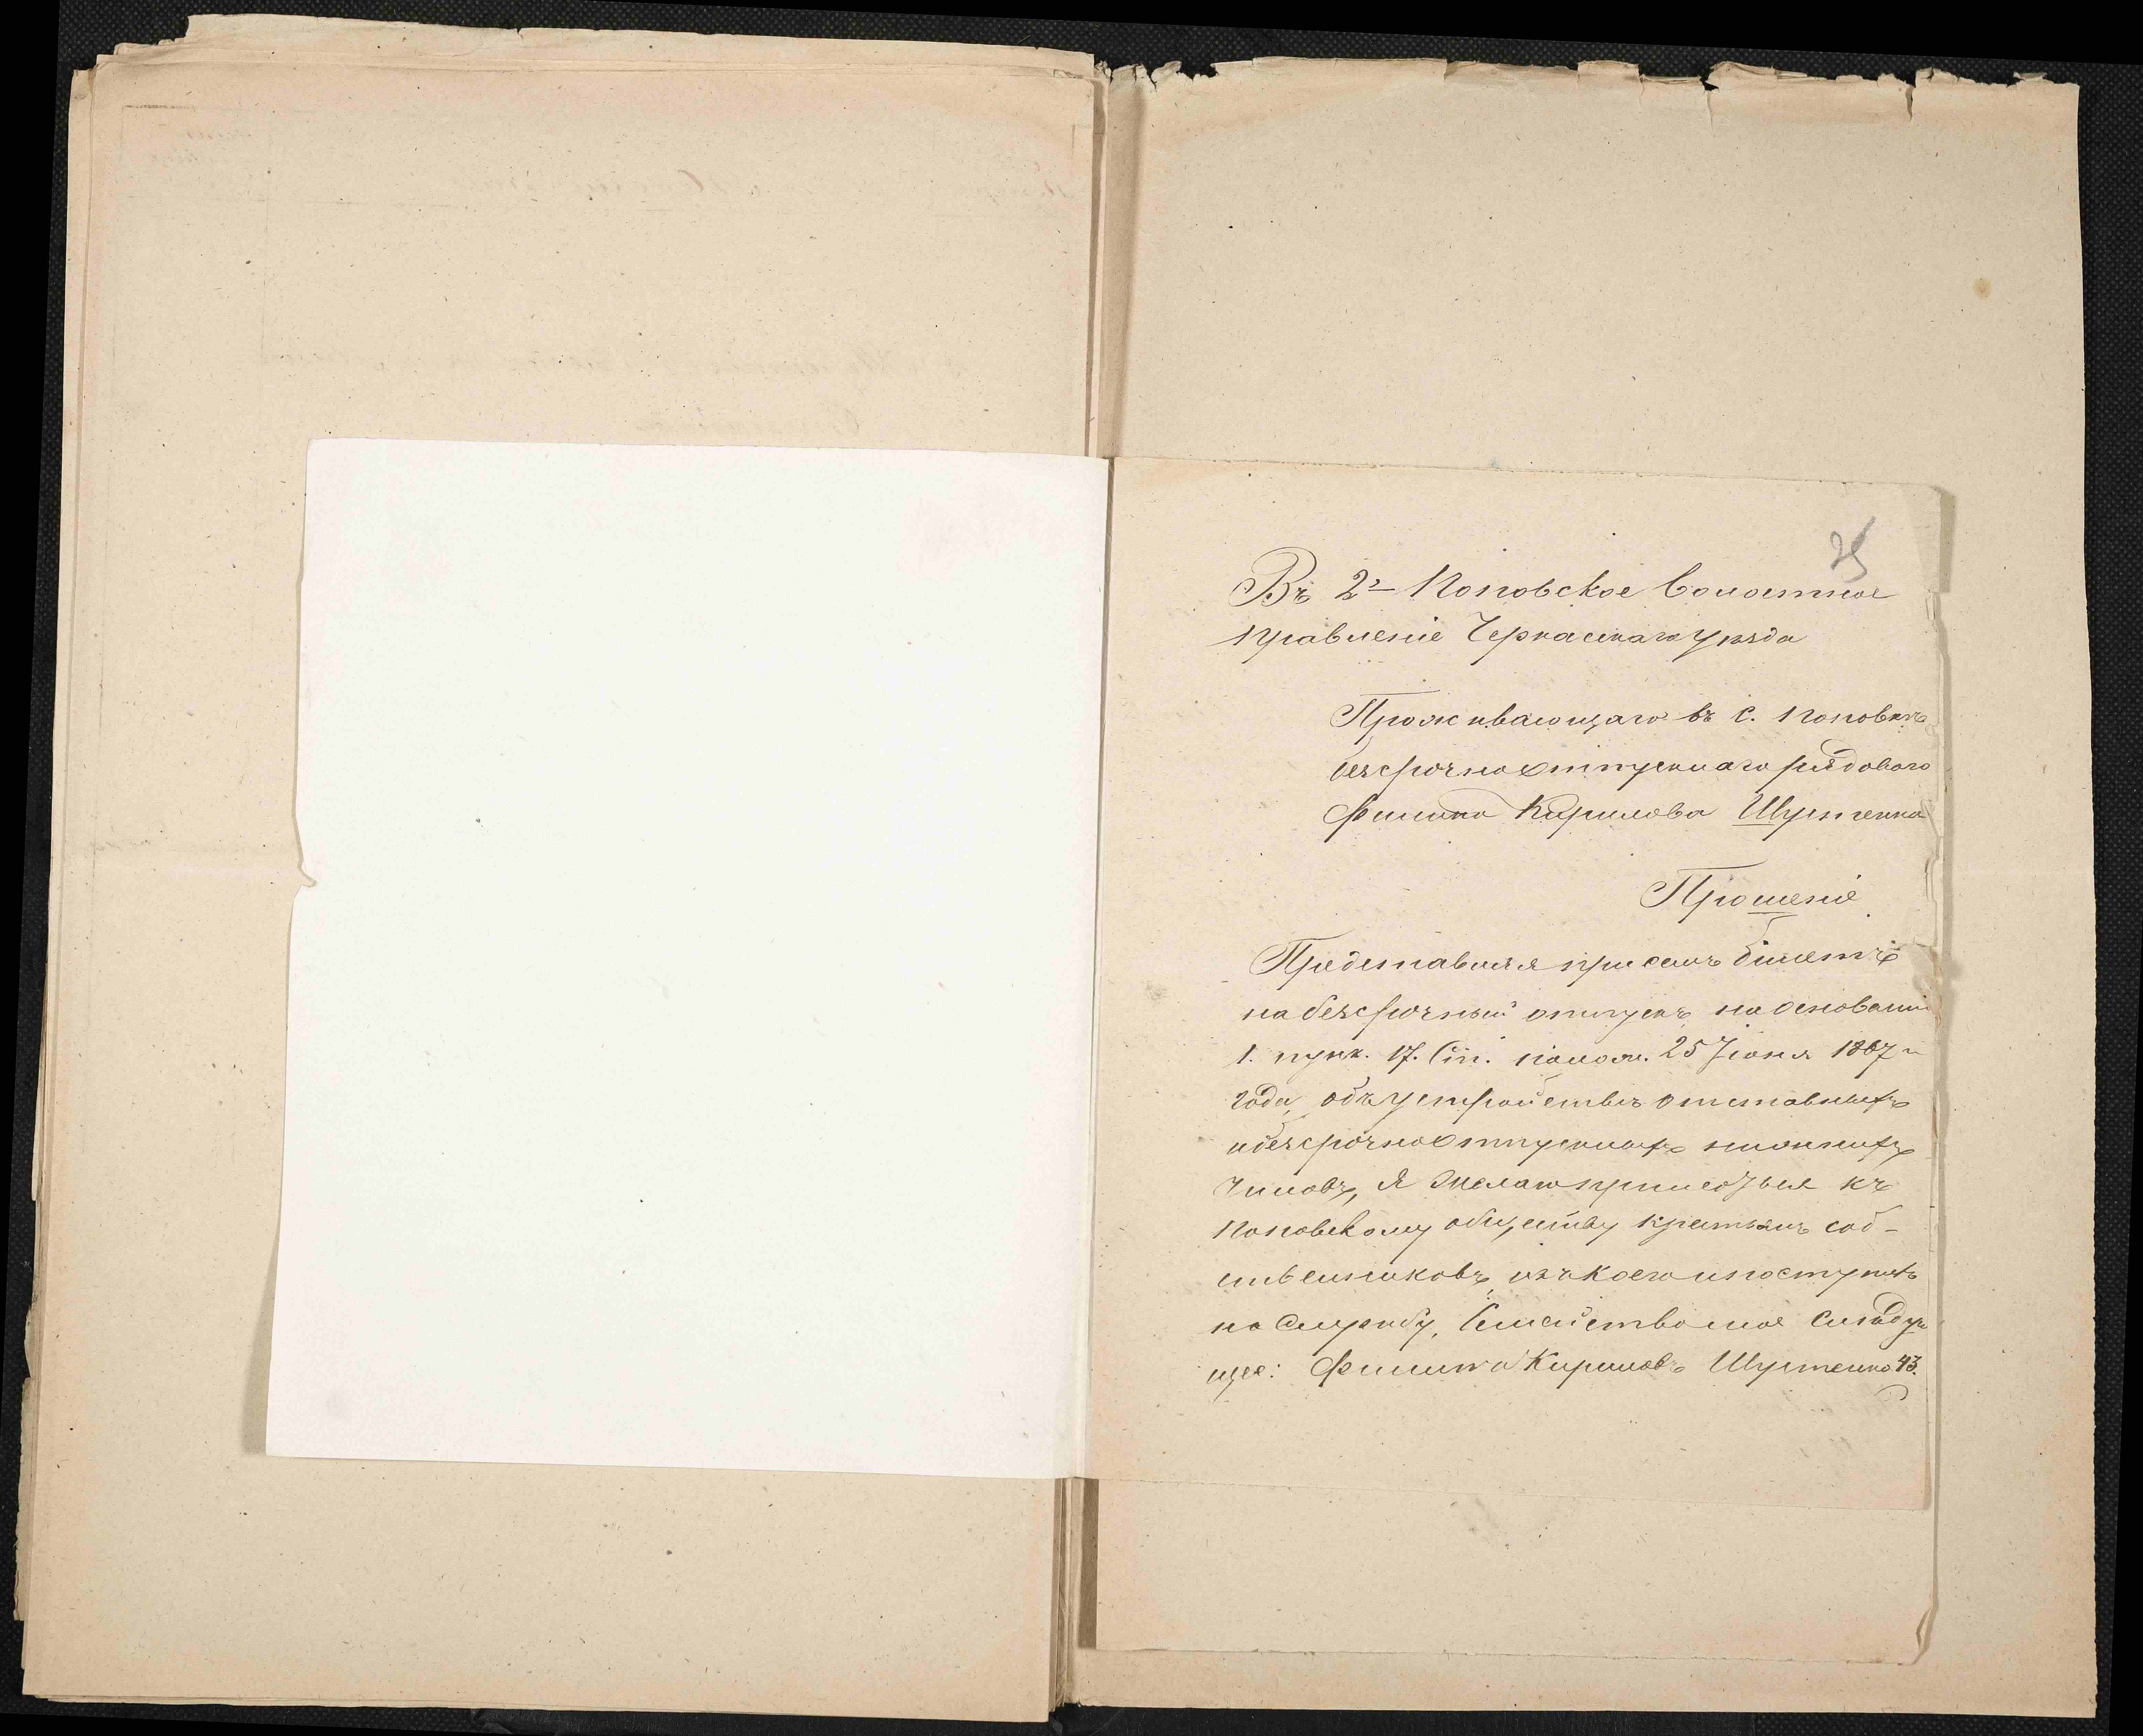 25
Въ 2е Поповское Волостное
правленіе Черкаскаго уѣзда
Проживающаго въ с. Поповкѣ
безсрочноотпускнаго рядового
Филипа Кирилова Шултенка
Прошеніе
Представляя при семъ билетъ
на безсрочный отпускъ, на основаніи
1. пунк. 17. Ст. полож. 25 Іюня 1867 г
года, объ устройствѣ отставныхъ
и безсрочноотпускныхъ нижнихъ
чиновъ, я желаю приписатьса къ
Поповскому обществу крестьянъ соб-
ственниковъ, изъ коего и поступилъ
на Службу, Семейство мое Слѣдую
щее: Филипъ Кириловъ Шултенко 43.